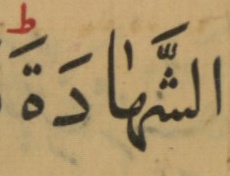 الشَّهَادَةَ ۚ ط